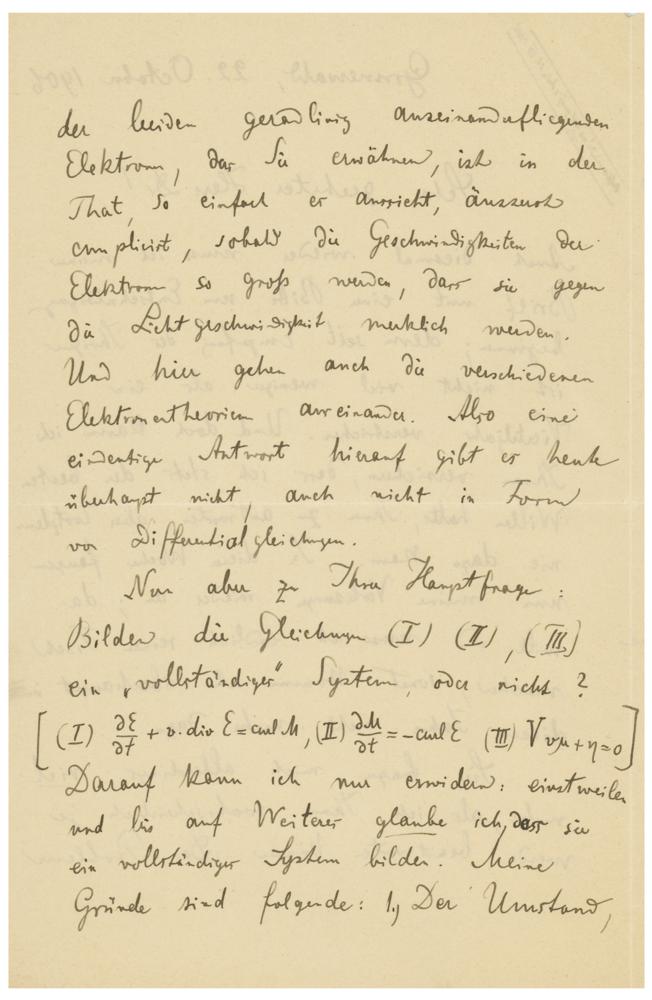 der beiden geradlinig auseinanderfliegenden
Elektronen, das Sie erwähnen, ist in der
That, so einfach es aussieht, äusserst
complicirt, sobald die Geschwindigkeiten der
Elektronen so groß werden, dass sie gegen
die Lichtgeschwindigkeit merklich werden.
Und hier gehen auch die verschiedenen
Elektronentheorien auseinander. Also eine
eindeutige Antwort hierauf gibt es heute
überhaupt nicht, auch nicht in Form
von Differentialgleichungen.
Nun aber zu Ihrer Hauptfrage:
Bilden die Gleichungen (I) (II), (III)
ein „vollständiges" System, oder nicht?
[(I) ∂E/∂t + v. div E = curl M, (II) ∂M/∂t = - curl E (III) V vμ + η = 0]
Darauf kann ich nur erwidern: einstweilen
und bis auf Weiteres glaube ich, dass sie
ein vollständiges System bilden. Meine
Gründe sind folgende: 1.) Der Umstand,